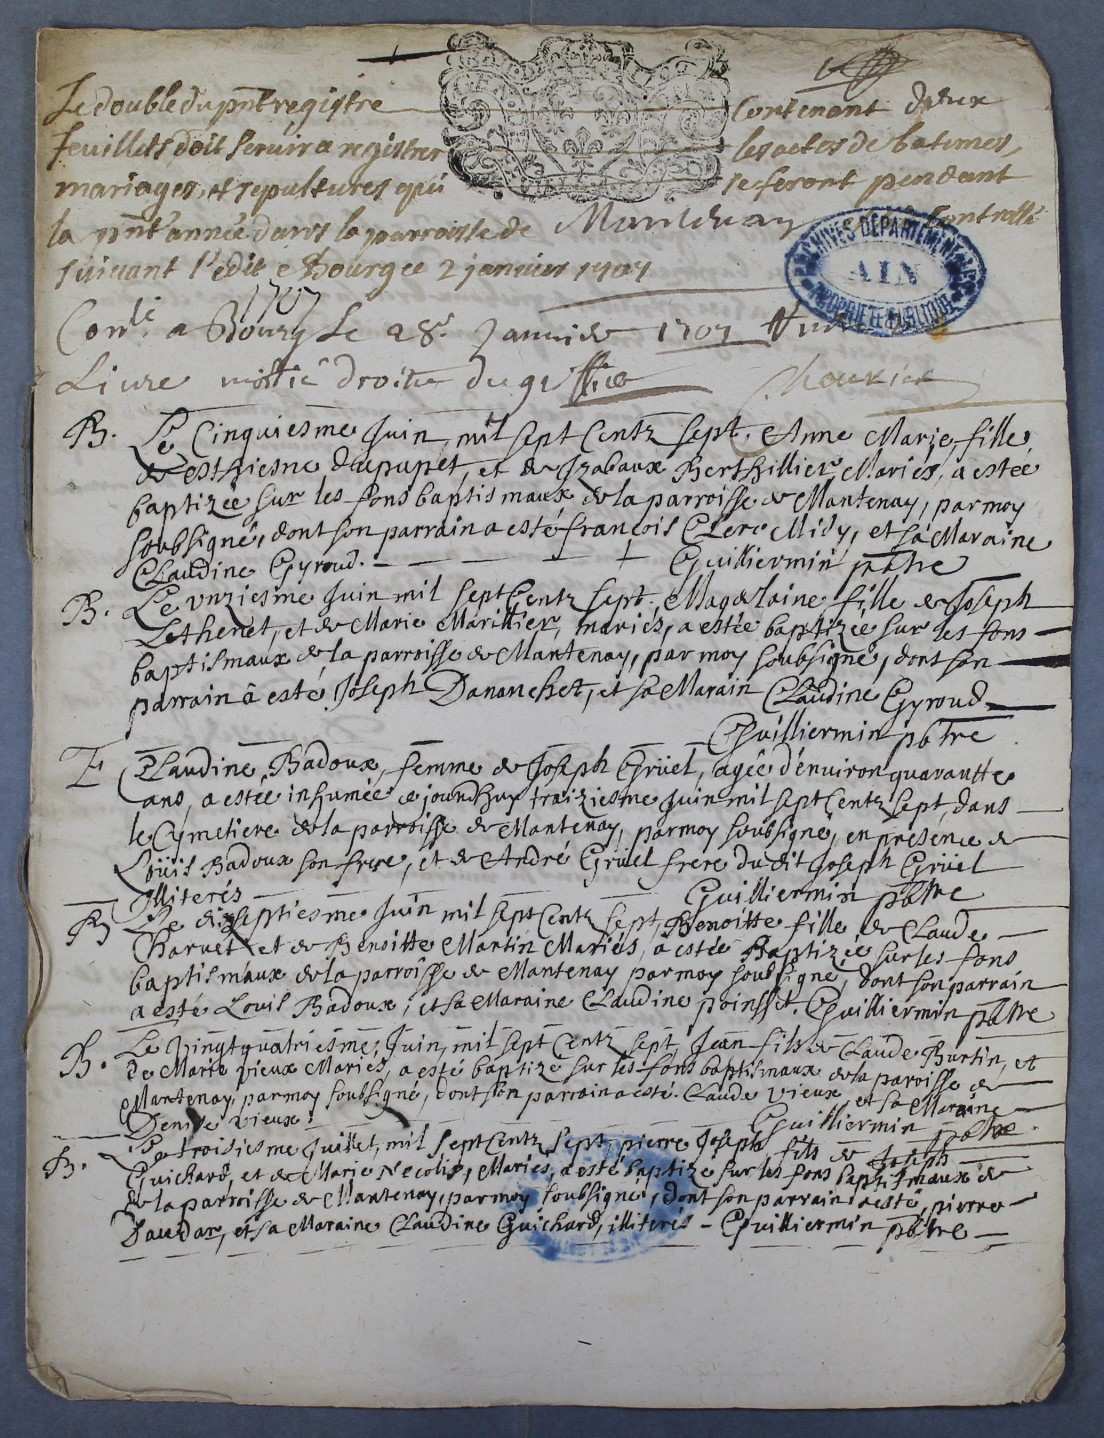 Le double du pnt registre Contenant deux
feuillets doit servir a registrer les actes de batemes,
mariages, et sepultures qui se feront pendant
la pnt' année dans la parroisse de Mantenay Controllé
suivant l'edit a Bourg ce 2 janvier 1707
1707
Conle. a Bourg Le 28e Janvier 1707
Livre moitié droits du greffe
ARCHIVES DEPARTEMENTALES
AIN
PROPRIETE PUBLIQUE
B. Le Cinquiesme Juin, mil sept Centz sept. Anne Marie, fille
de esthiesne dupupet, et de Izabaux Berthillier Mariés, a estée
baptizée sur les fons baptismaux de la parroisse de Mantenay, par moy
soubsigné, dont son parrain a esté françois Clerc Midy, et sa Maraine
Claudine Gyroud. Guilliermin pbtre
B. Le unziesme Juin mil sept Centz sept. Magdelaine fille de Joseph
Lethenet, et de Marie Marillier, mariés, a estée baptizée sur les fons
baptismaux de la parroisse de Mantenay, par moy soubsigné, dont son
parrain â esté Joseph Dananchet, et sa Marain Claudine Gyroud
Guilliermin pbtre
E Claudine Badoux, femme de Joseph Grüel, agée d'environ quarantte
ans, a estée inhumée ce jourdhuy traiziesme Juin mil sept Centz sept, dans
le Cymetiere de la parroisse de Mantenay, par moy soubsigné, en presence de
Loüis Badoux son frere, et de André Grüel frere dudit Joseph Grüel
Illiterés Guilliermin pbtre
B Le dixseptiesme Juin mil sept Centz sept, Benoitte fille de Claude
Charvet et de Benoitte Martin Mariés, a estée Baptizée sur les fons
baptismaux de la parroisse de Mantenay par moy soubsigné, dont son parrain
a esté Louis Badoux, et sa Maraine Claudine poinsset. Guilliermin pbtre
B. Le Vingtquatriesme, Juin, mil sept Centz sept, Jean fils de Claude Burtin, et
de Marie vieux Mariés, a esté baptizé sur les fons baptismaux de la paroisse de
Mantenay, par moy soubsigné, dont son parrain a esté. Claude vieux, et sa Maraine
Denise vieux. Guilliermin pbtre
B. Le troisiesme Juillet, mil sept Centz sept, pierre Joseph fils de Joseph
Guichard, et de Marie Necolié, Mariés, a esté baptizé sur les fons baptismaux de
de la parroisse de Mantenay, par moy soubsigné, dont son parrain a esté, pierre
Daudar, et sa Maraine Claudine Guichard, illiterés - Guilliermin pbtre